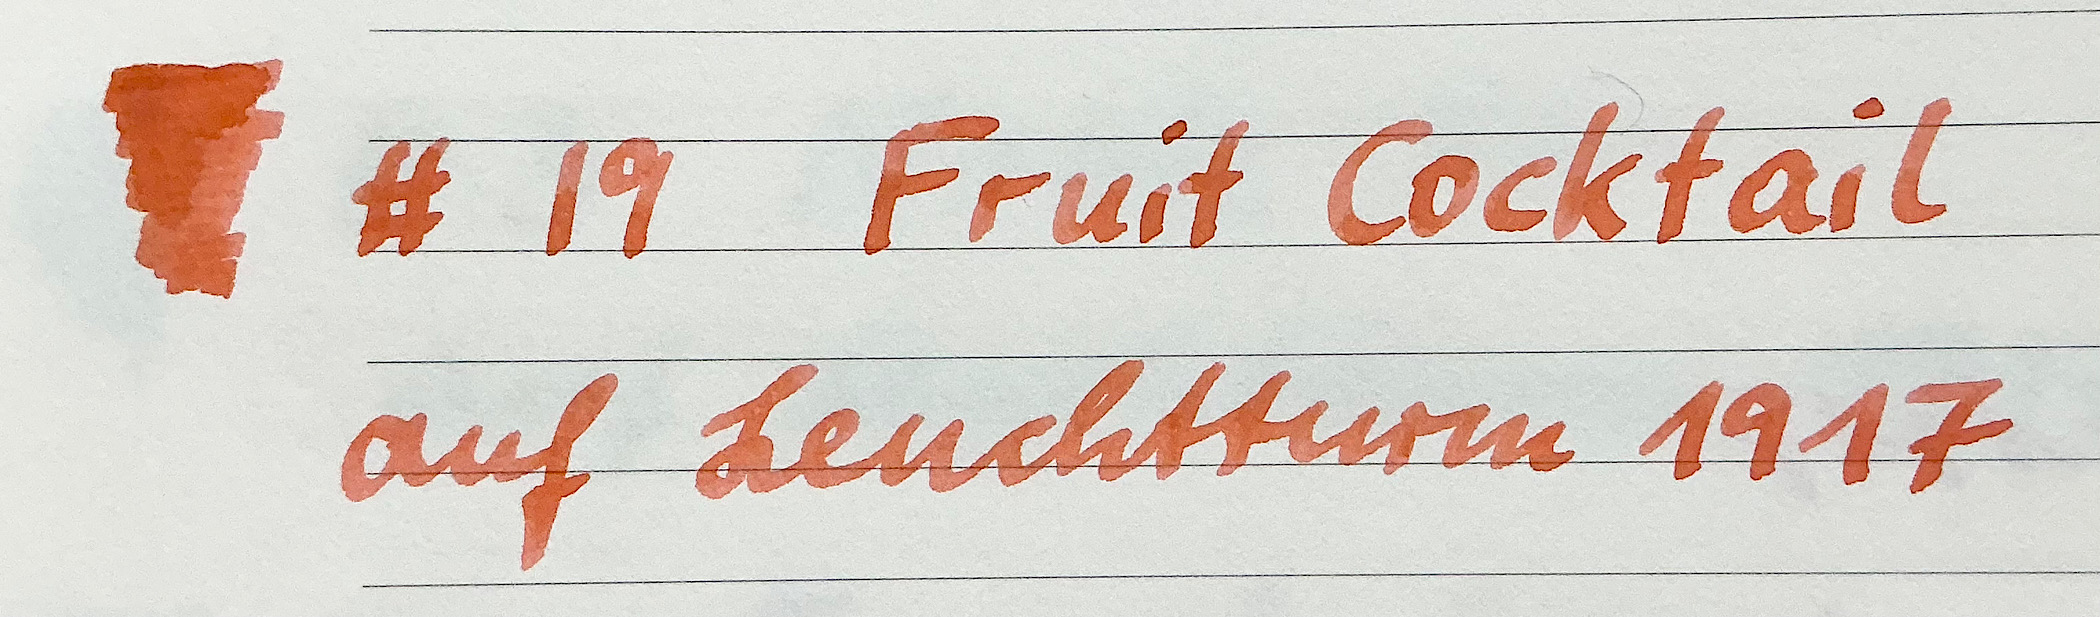 # 19 Fruit Cocktail
auf Leuchtturm 1917